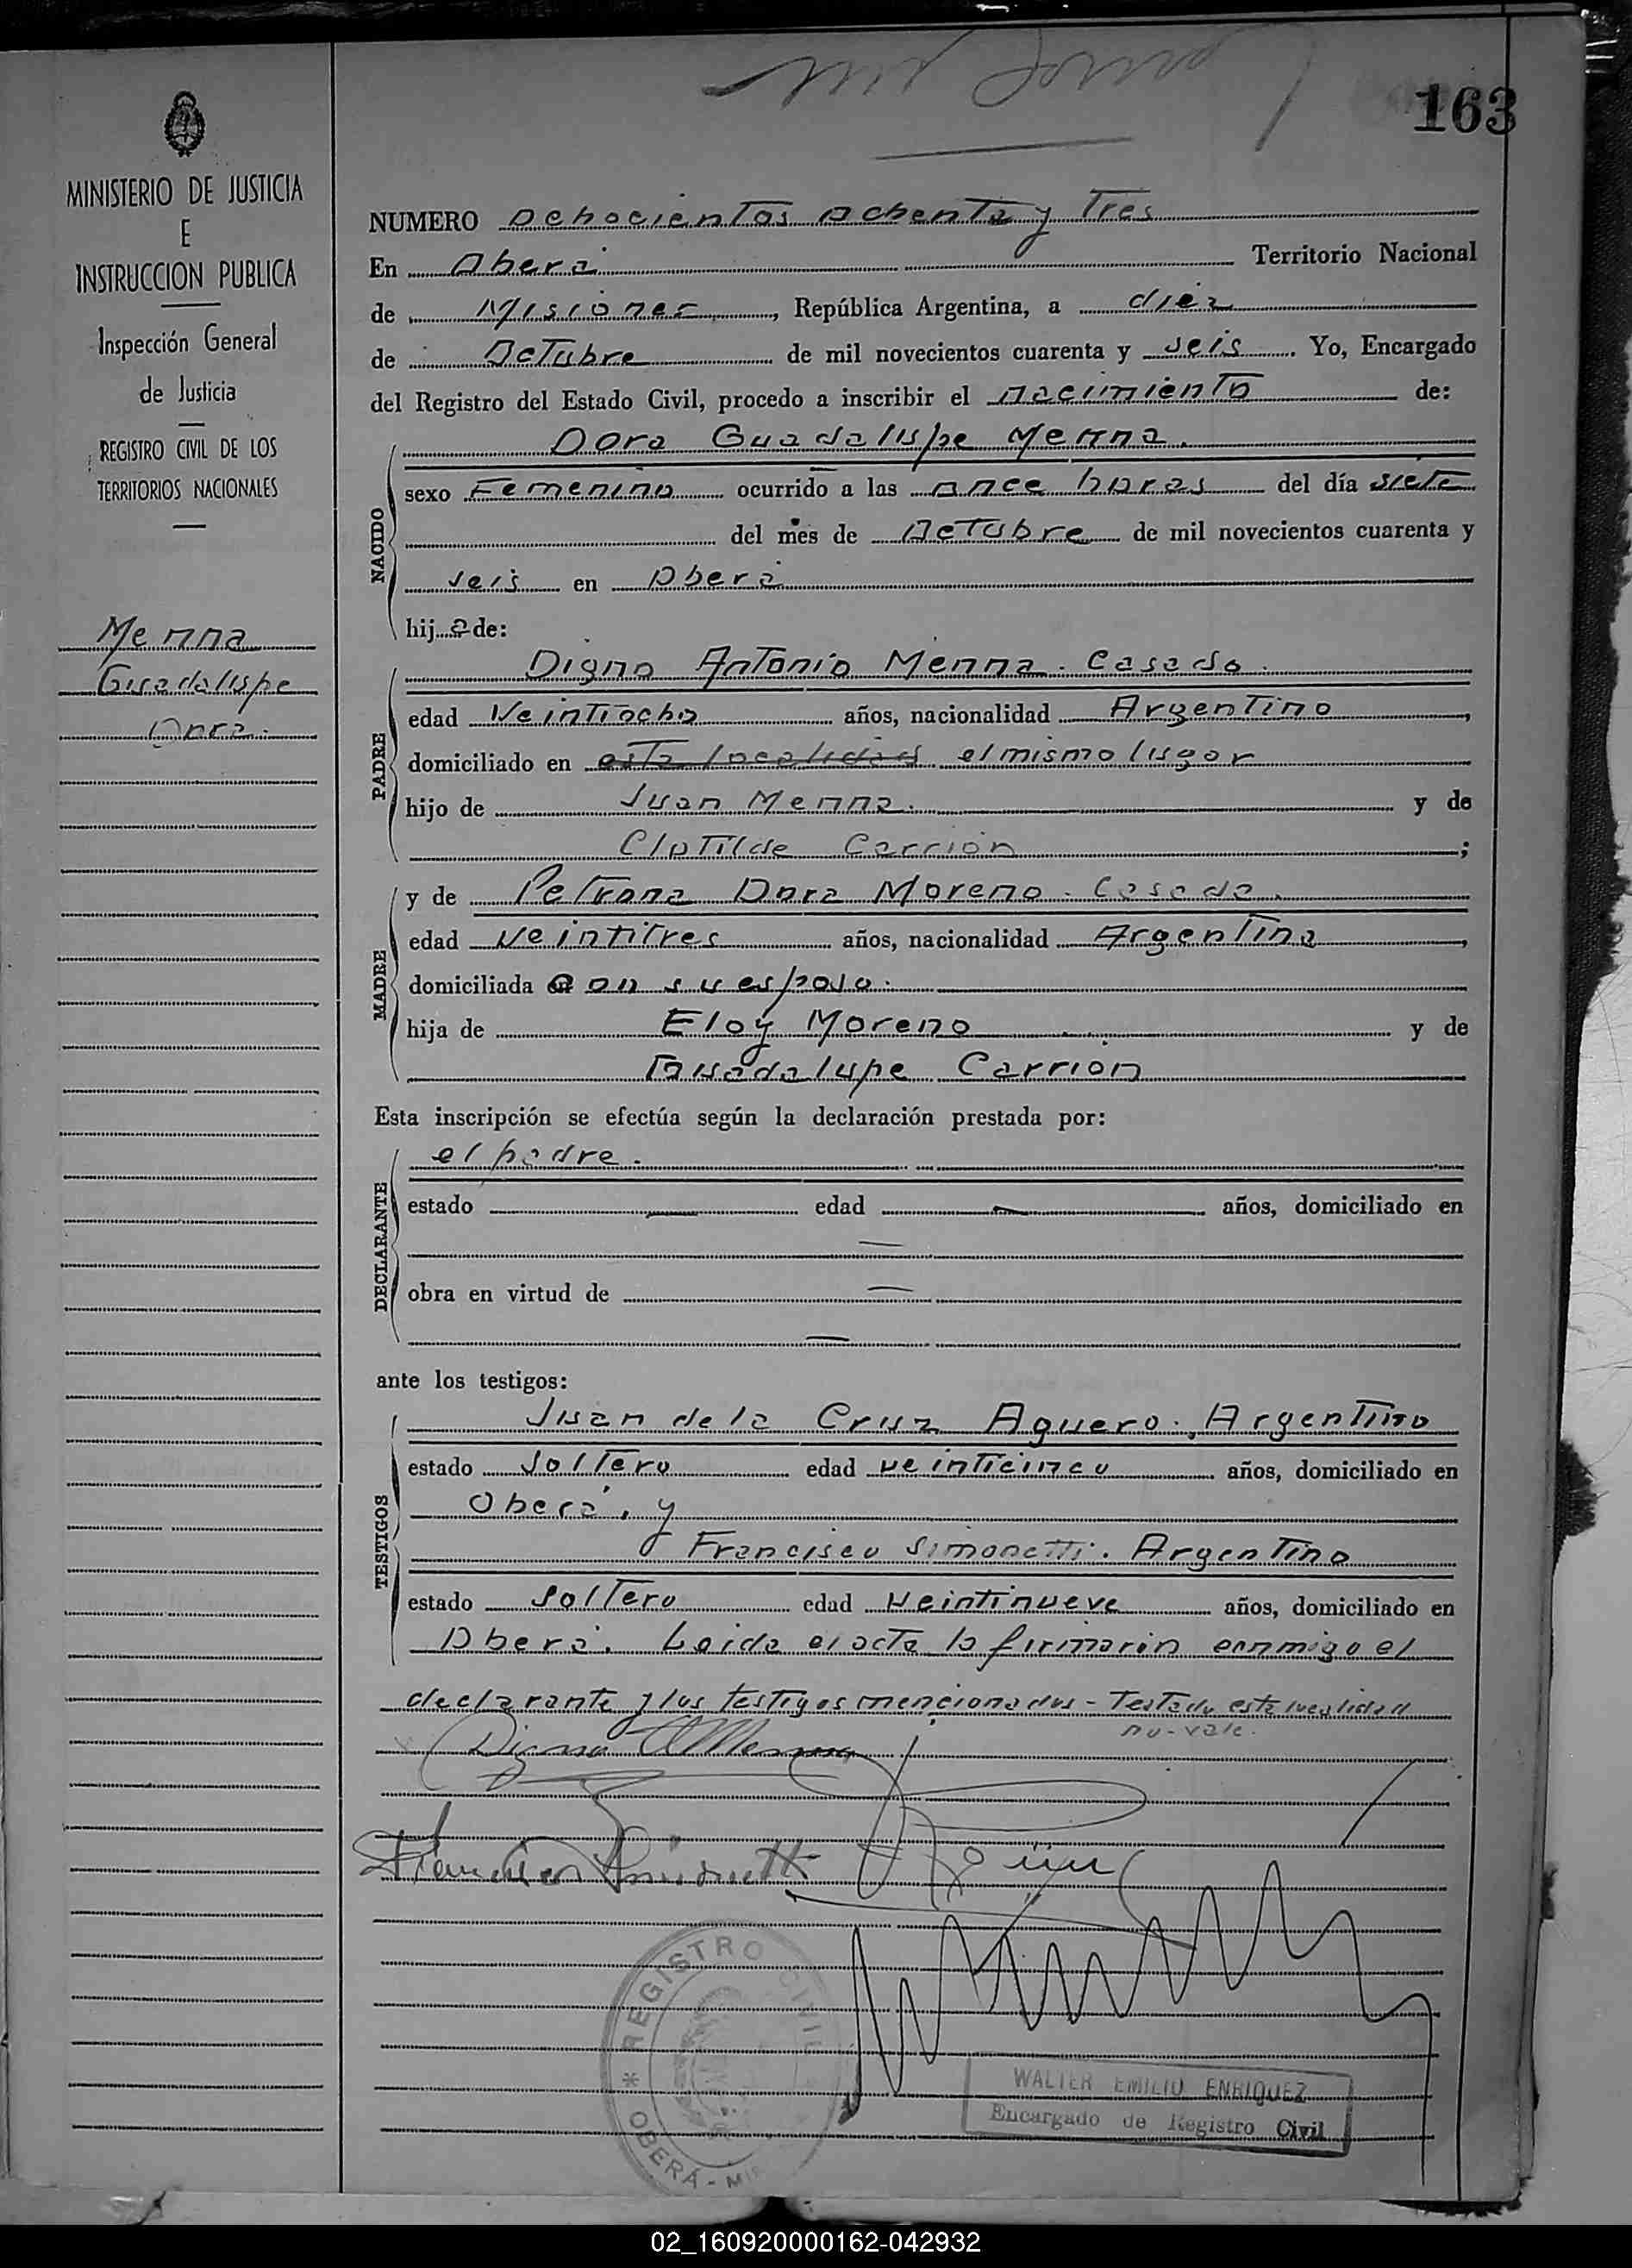 163
MINISTERIO DE JUSTICIA
E
INSTRUCCION PUBLICA
Inspección General
de Justicia
REGISTRO CIVIL DE LOS
TERRITORIOS NACIONALES
Menna
Guadalupe
Dora.
NUMERO Ochocientos ochenta y Tres
En Oberá Territorio Nacional
de Misiones, República Argentina, a diez
de Octubre de mil novecientos cuarenta y seis. Yo, Encargado
del Registro del Estado Civil, procedo a inscribir el nacimiento de:
Dora Guadalupe Menna.
NACIDO
sexo Femenino ocurrido a las once horas del día siete
del mes de Octubre de mil novecientos cuarenta y
seis en Oberá
hija de:
PADRE
Digno Antonio Menna. Casado.
edad Veintiocho años, nacionalidad Argentino,
domiciliado en esta localidad el mismo lugar
hijo de Juan Menna. y de
Clotilde Carrión;
MADRE
y de Petrona Dora Moreno. Casada.
edad Veintitres años, nacionalidad Argentina,
domiciliada con su esposo.
hija de Eloy Moreno y de
Guadalupe Carrión
Esta inscripción se efectúa según la declaración prestada por:
DECLARANTE
el padre.
estado — edad — años, domiciliado en
—
obra en virtud de —
—
ante los testigos:
TESTIGOS
Juan de la Cruz Aguero. Argentino
estado Soltero edad veinticinco años, domiciliado en
Oberá, y
Francisco Simonetti. Argentino
estado Soltero edad Veintinueve años, domiciliado en
Oberá. Leida el acta la firmarón conmigo el
declarante y los testigos mencionados - Testado esta localidad
no-vale.
Digno A Menna
Francisco Simonetti
REGISTRO CIVIL
* OBERÁ - MIS
WALTER EMILIO ENRIQUEZ
Encargado de Registro Civil
02_160920000162-042932